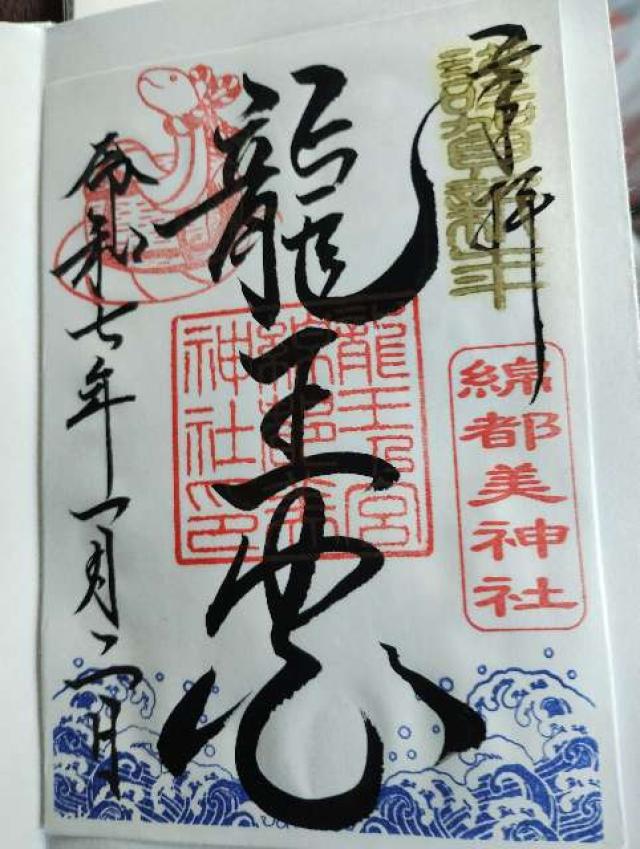 奉拝
謹賀新年
綿都美神社
龍王
龍王乃宮
綿都美
神社印
令和七年一月二日